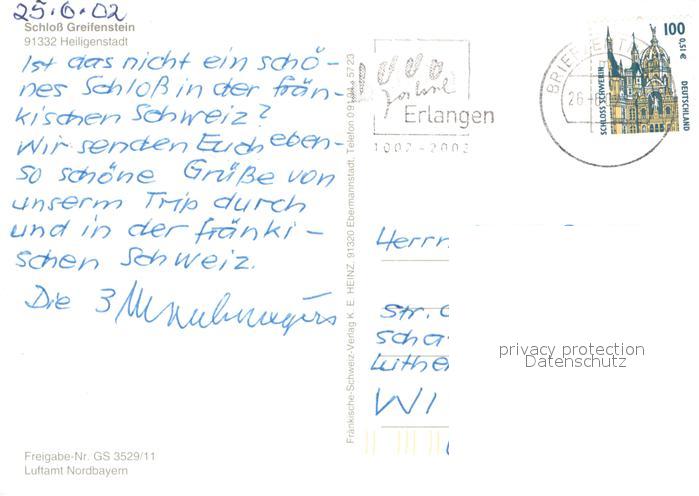 25.6.02
Schloß Greifenstein
91332 Heiligenstadt
Ist das nicht ein schö-
nes Schloß in der frän-
kischen Schweiz?
Wir senden Euch eben-
so schöne Grüße von
unserm Trip durch
und in der fränki-
schen Schweiz.
Die 3
Freigabe-Nr. GS 3529/11
Luftamt Nordbayern
Fränkische-Schweiz-Verlag K. E. HEINZ, 91320 Ebermannstadt, Telefon 09194
Erlangen
1002-2002
BRIEFZENTR
26
100
0,51 €
SCHLOSS SCHWERIN
DEUTSCHLAND
Herrn
Str. 
Scha
Luthe
WI
privacy protection
Datenschutz